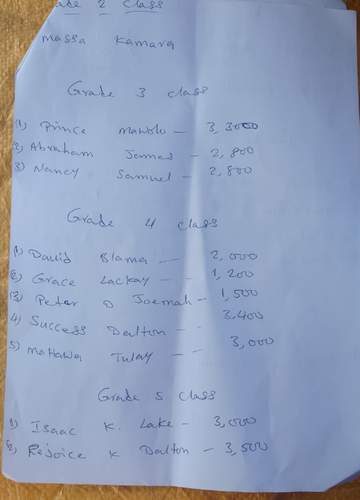 ade 2 Class
Massa Kamara
Grade 3 class
(1) Prince Mawolo - 3,300
2) Abraham James - 2,800
3) Nancy Samuel - 2,800
Grade 4 class
(1) David Blama -- 2,000
(2) Grace Lackay -- 1,200
(3) Peter D Joemah - 1,500
4) Success Dalton -- 3,400
5) Mahawa Tulay -- 3,000
Grade 5 Class
1) Isaac K. Lake - 3,000
(2) Rejoice K Dalton - 3,500